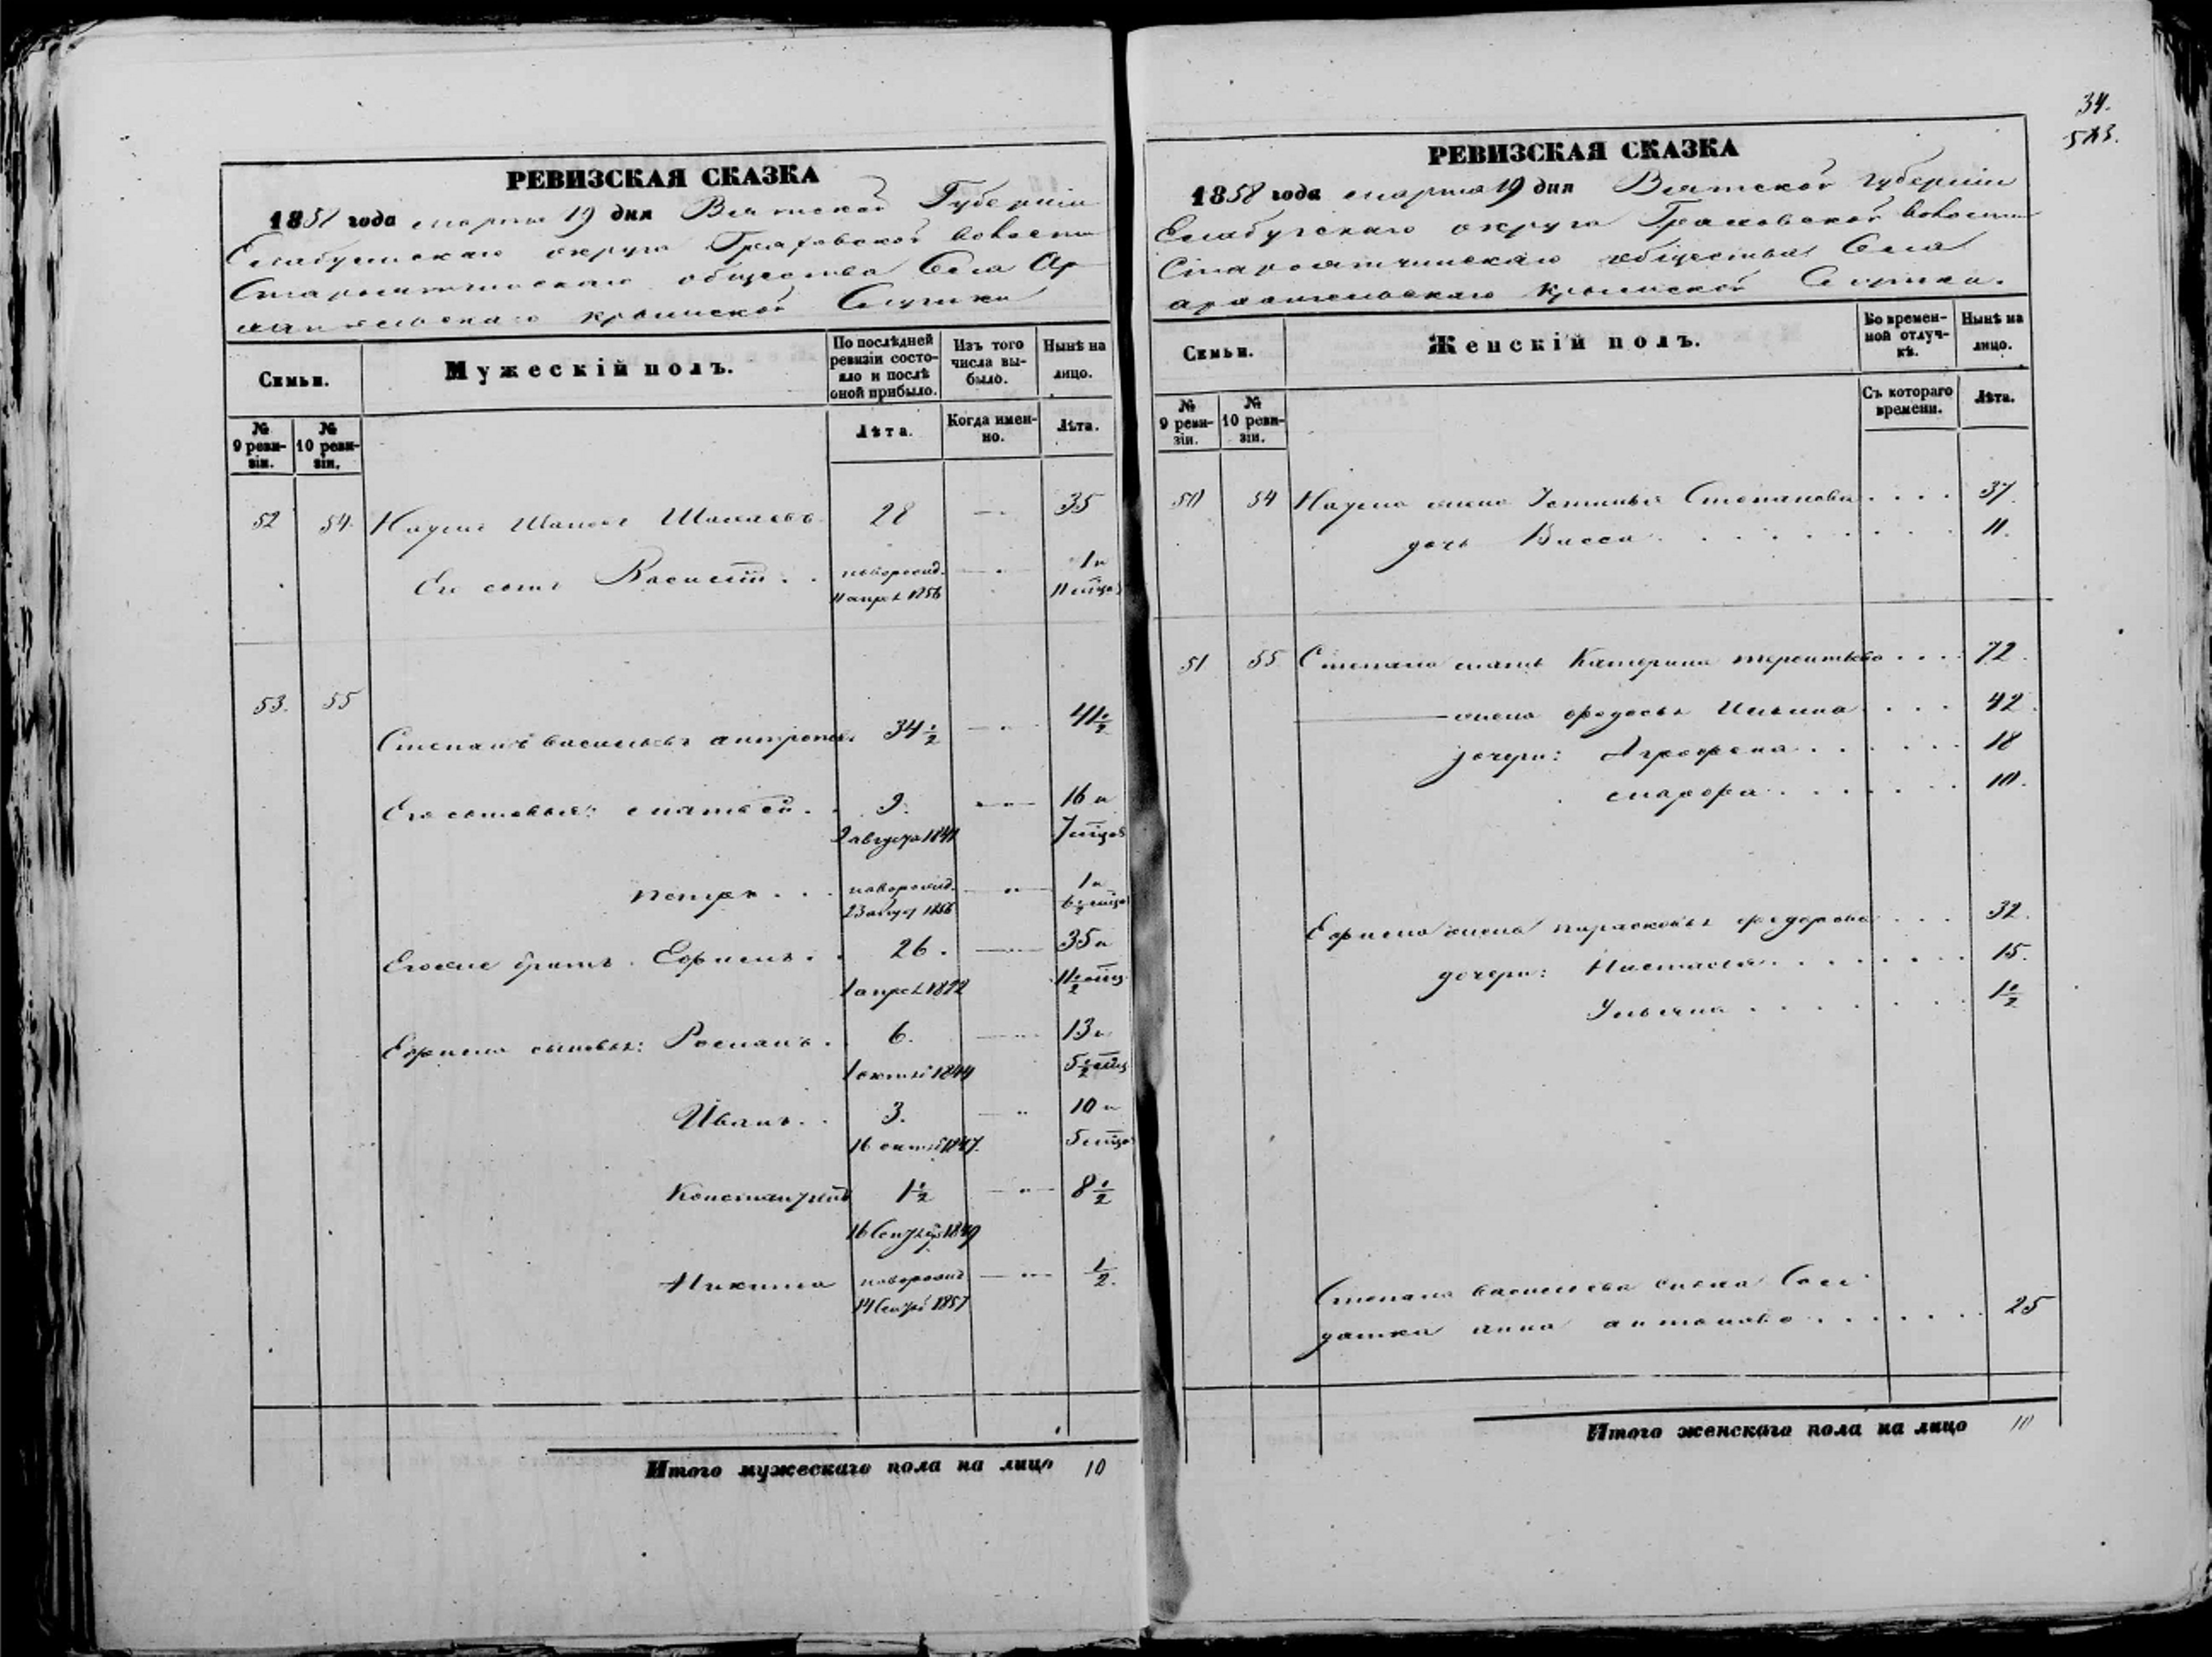 34.
543.
РЕВИЗСКАЯ СКАЗКА
1858 года марта 19 дня Вятской Губерніи
Елабужскаго округа Граховской волости
общества Села Ар
крымской Слудки
Семьи.
Мужескій полъ.
По послѣдней ревизіи состояло и послѣ оной прибыло.
Изъ того числа выбыло.
Нынѣ на лицо.
№ 9 ревизіи.
№ 10 ревизіи.
Лѣта.
Когда именно.
Лѣта.
52 54 Наумъ 28 — 35
Его сынъ Василій . . новорожд. — 1 и
11 апрел 1856 11 мѣцов
53. 55
Степанъ васильевъ антропов 34 1/2 — 41 1/2
Его сыновья: матвей . . 9. — 16 и
2 августа 1841 7 мѣцов
петръ . . . новорожд. — 1 и
23 август 1856 6 1/2 мѣцов
Егоже братъ Ефимъ . . 26. — 35 и
1 апрел 1822 11 1/2 мѣц
Ефима сыновья: Романъ . . 6. — 13 и
1 октяб 1844 5 1/2 мѣц
Иванъ . . 3. — 10 и
16 октяб 1847. 5 мѣцов
Константинъ 1 1/2 — 8 1/2
16 Сентяб 1849
Никита новорожд — 1/2.
14 Сентяб 1857
Итого мужескаго пола на лицо 10
РЕВИЗСКАЯ СКАЗКА
1858 года марта 19 дня Вятской губерніи
Елабужскаго округа Граховской волости
общества Села
архангельскаго крымской Слудки.
Семьи.
Женскій полъ.
Во временной отлучкѣ.
Нынѣ на лицо.
№ 9 ревизіи.
№ 10 ревизіи.
Съ котораго времени.
Лѣта.
50 54 Наума жена Устинья Степанова . . . . 37.
дочь Васса . . . . . . . . 11.
51 55 Степана мать Катерина терентьева . . . . 72.
— жена федосья Ильина . . . . 42.
дочери: Агрофена . . . . . . 18
марфа . . . . . . . 10.
Ефима жена парасковья федорова . . . 32.
дочери: Настасья . . . . . . . . 15.
Ульяна . . . . . . . 1 1/2
Степана васильева жена Сол
датка анна антонова . . . . . . 25
Итого женскаго пола на лицо 10